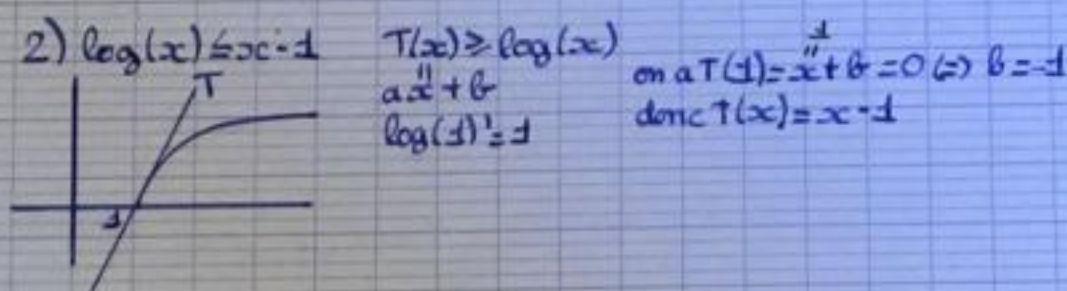 2) log(x) ≤ x-1
T
1
T(x) ≥ log(x)
ax + b
"
log(1)' = 1
1
"
on a T(1) = x + b = 0 (=) b = -1
donc T(x) = x - 1